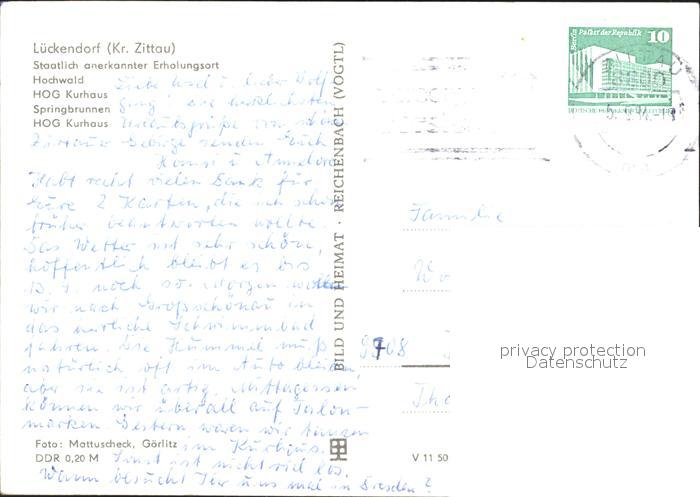 Lückendorf (Kr. Zittau)
Staatlich anerkannter Erholungsort
Hochwald
HOG Kurhaus
Springbrunnen
HOG Kurhaus
Liebe und lieber Wolf
die herzlichsten
Urlaubsgrüße vom schönen
Zittauer Gebirge senden Euch
Hansi u. Annelore
Habt recht vielen Dank für
Eure 2 Karten, die ich schon
früher beantworten wollte.
Das Wetter ist sehr schön,
hoffentlich bleibt es bis
noch so. Morgen wollen
wir nach Großschönau in
das herrliche Schwimmbad
fahren. Die Hummel muß
natürlich oft im Auto bleiben,
aber sie ist artig. Mittagessen
können wir überall auf Talon-
marken. Gestern waren wir tanzen
im Kurhaus.
Sonst ist nicht viel los.
Wann besucht Ihr uns mal in Dresden?
Foto: Mattuscheck, Görlitz
DDR 0,20 M
BILD UND HEIMAT · REICHENBACH (VOGTL)
V 11 50
Berlin Palast der Republik 10
Familie
Wo
9708
Tho
privacy protection
Datenschutz